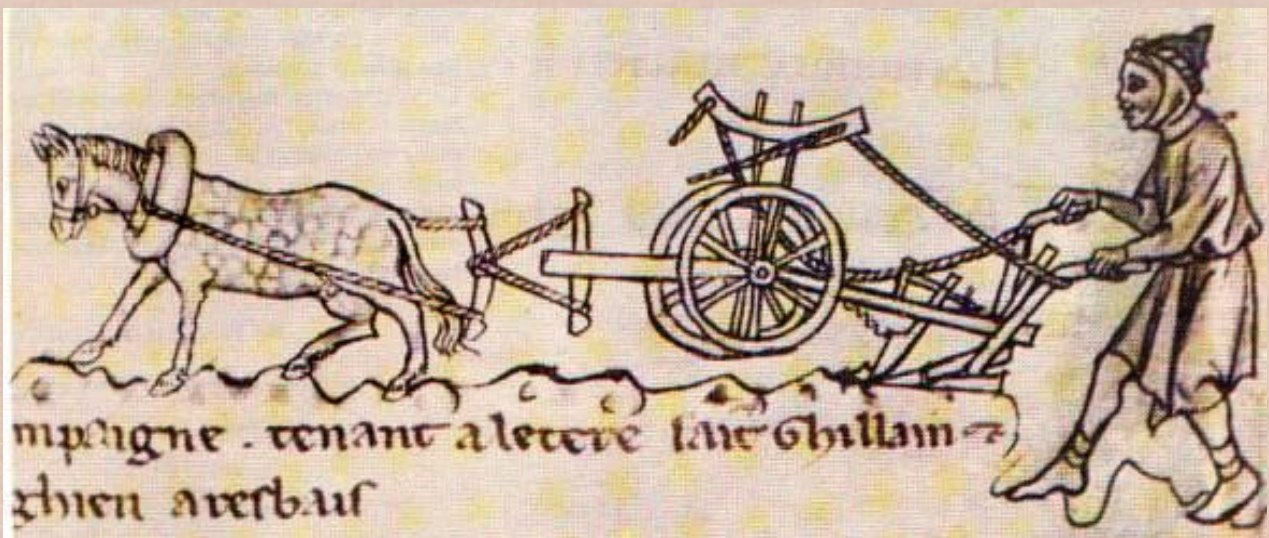 mpaigne . tenant a le tere saīt Ghillain ⁊
ghien a resbais